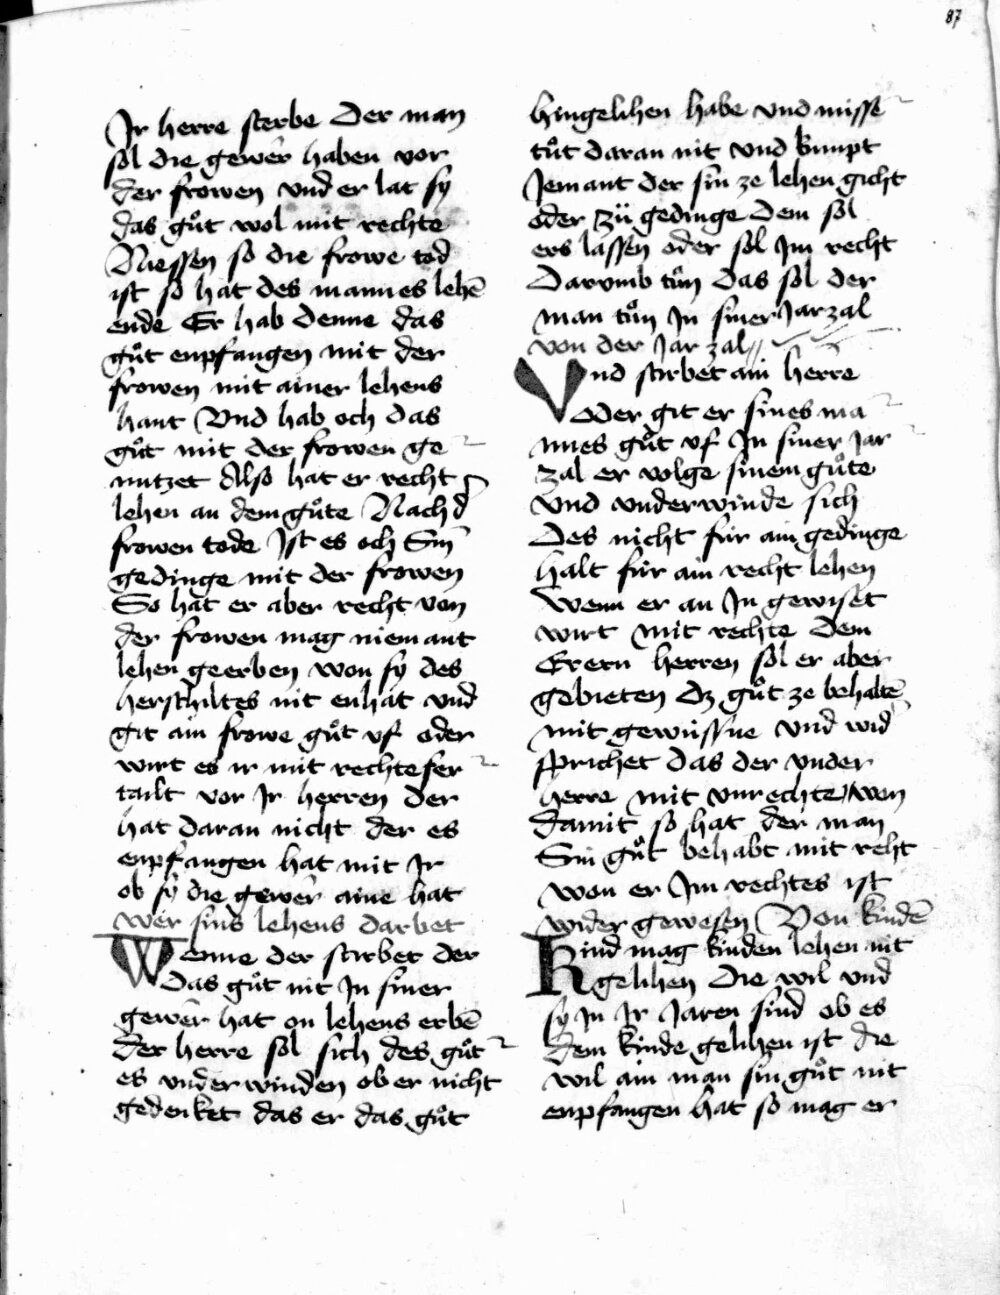 87
Jr herre sterbe Der man
sol die gewer haben vor
der frowen vnd er lat sy
das guͦt wol mit rechte
Niessen so die frowe tod
ist so hat des mannes lehē
ende Er hab denne das
guͦt enpfangen mit der
frowen mit ainer lehens
hant Vnd hab och das
guͦt mit der frowen ge
nutzet Also hat er recht
lehen an dem guͦte Nach d
frowen tode Jst es och Sin
gedinge mit der frowen
So hat er aber recht von
der frowen mag niemant
lehen geerben won sy des
herschiltes nit enhat vnd
git ain frowe guͦt vf oder
wirt es ir mit rechte fer
tailt vor Jr herren der
hat daran nicht der es
enpfangen hat mit Jr
ob sy die gewer aine hat
wer sins lehens darbet
Wenne der stirbet der
Das guͦt nit Jn siner
gewer hat on lehens erbē
der herre sol sich des guͦt
es vnderwinden ob er nicht
gedenket das er das guͦt
hingelihen habe vnd misse
tuͦt daran nit vnd kumpt
Jemant der sin ze lehen gicht
oder zuͦ gedinge Dem sol
ers lassen oder sol Jm recht
Darumb tuͦn Das sol der
man tuͦn Jn siner Jarzal
von der Jar zal
Vnd stirbet ain herre
oder git er sines ma
nnes guͦt vf Jn siner jar
zal er volge sinem guͦte
vnd vnderwinde sich
Des nicht fúr ain gedinge
halt fúr ain recht lehen
Wenn er an Jn gewiset
wirt Mit rechte Dem
Erern herren sol er aber
gebieten dz guͦt ze behaltē
mit gewússne vnd wid
sprichet das der vnder
herre mit vnrechte won
damit so hat der man
Sin guͦt behabt mit reht
won er Jm rechtes ist
wider gewesen Von kindē
Kind mag kinden lehen nit
gelihen Die wil vnd
sy Jn Jr Jaren sind ob es
dem kinde gelihen ist die
wil ain man sin guͦt nit
enpfangen hat so mag er